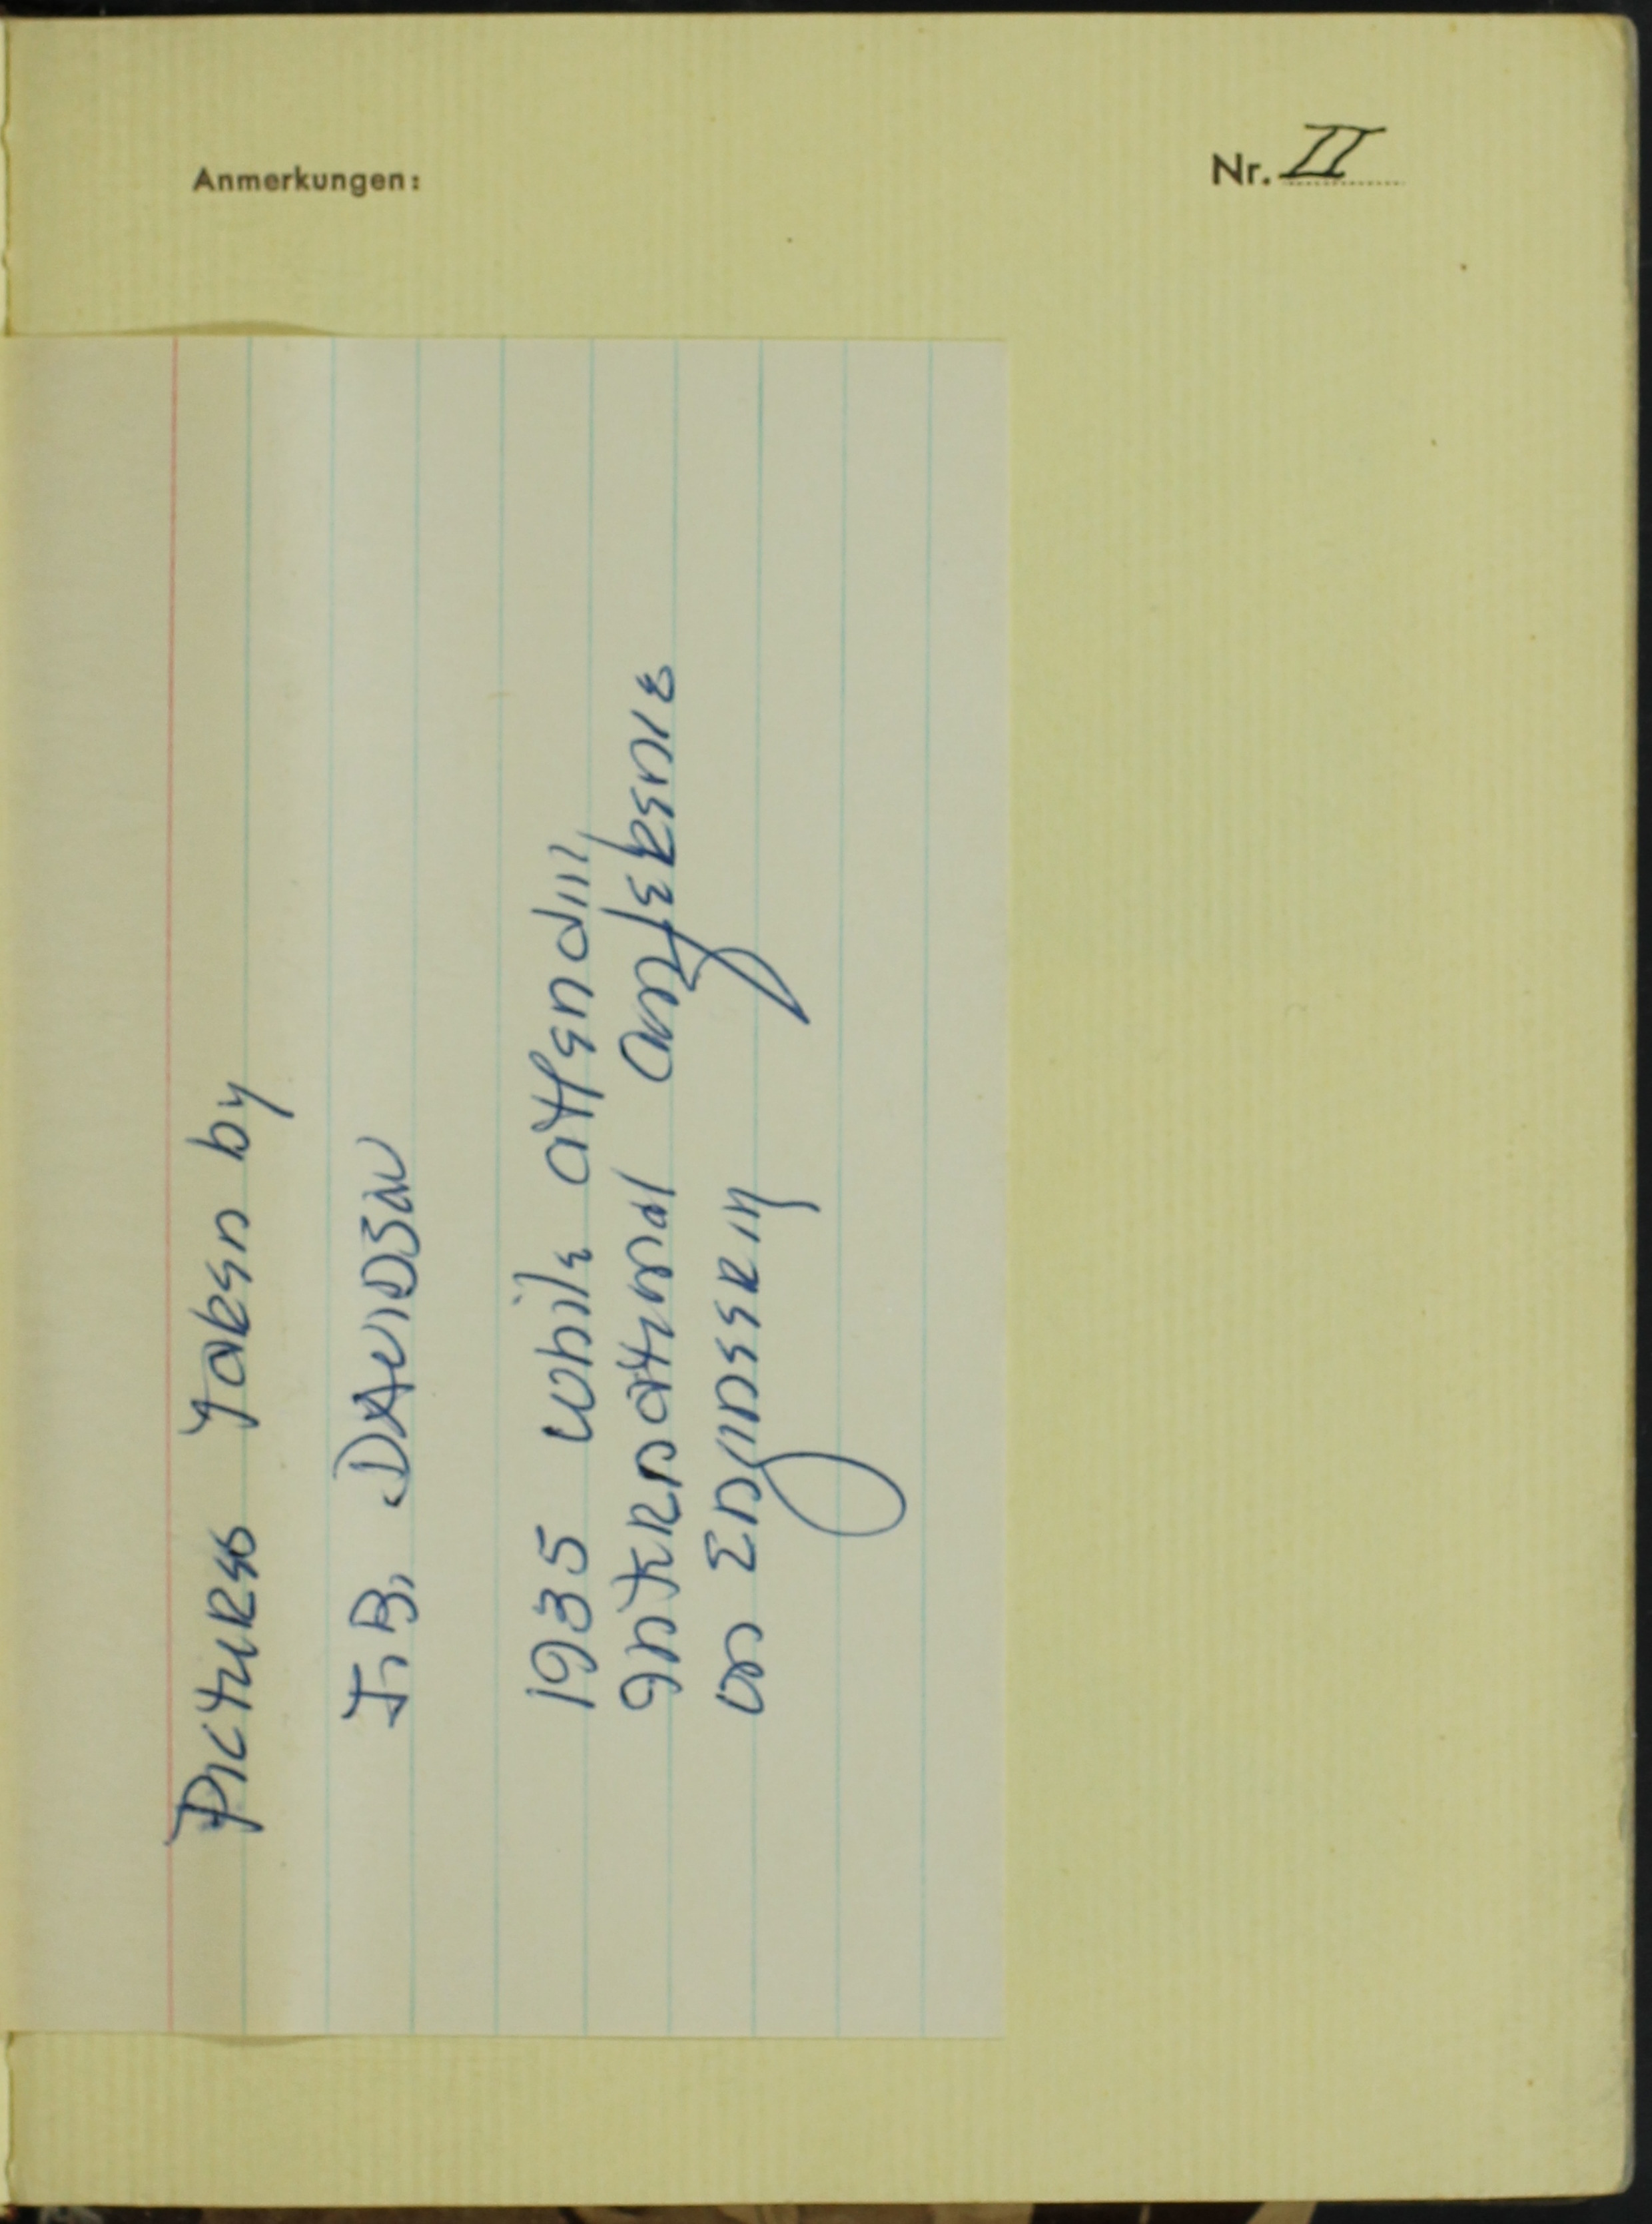 Anmerkungen:
Nr. II
Pictures Taken by
J.B. DAVIDSON
1935 while attending
International Conference
on Engineering